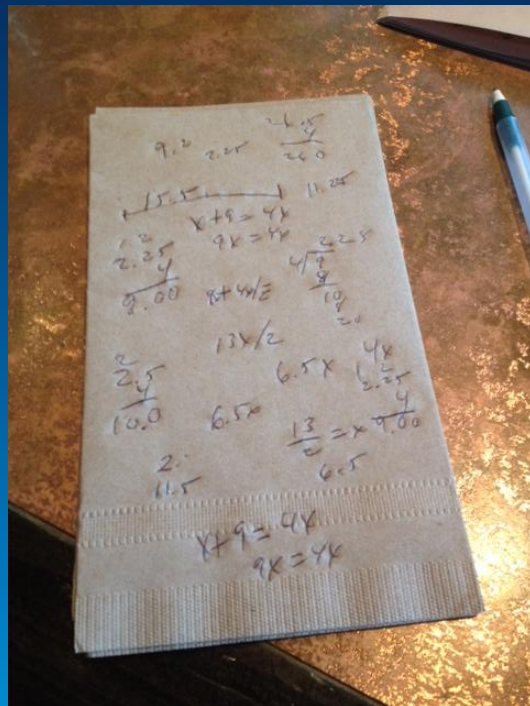 9.2 2.25
26.5
4
26.0
15.5
11.25
x+9=4x
9x=4x
1 2
2.25
4
9.00
2.25
4√9
8
10
8
20
13x/2
2
2.5
4
10.0
6.5x
6.5x
4x
1 2
2.25
4
9.00
13/2 = x
6.5
2.
11.5
x+9=4x
9x=4x